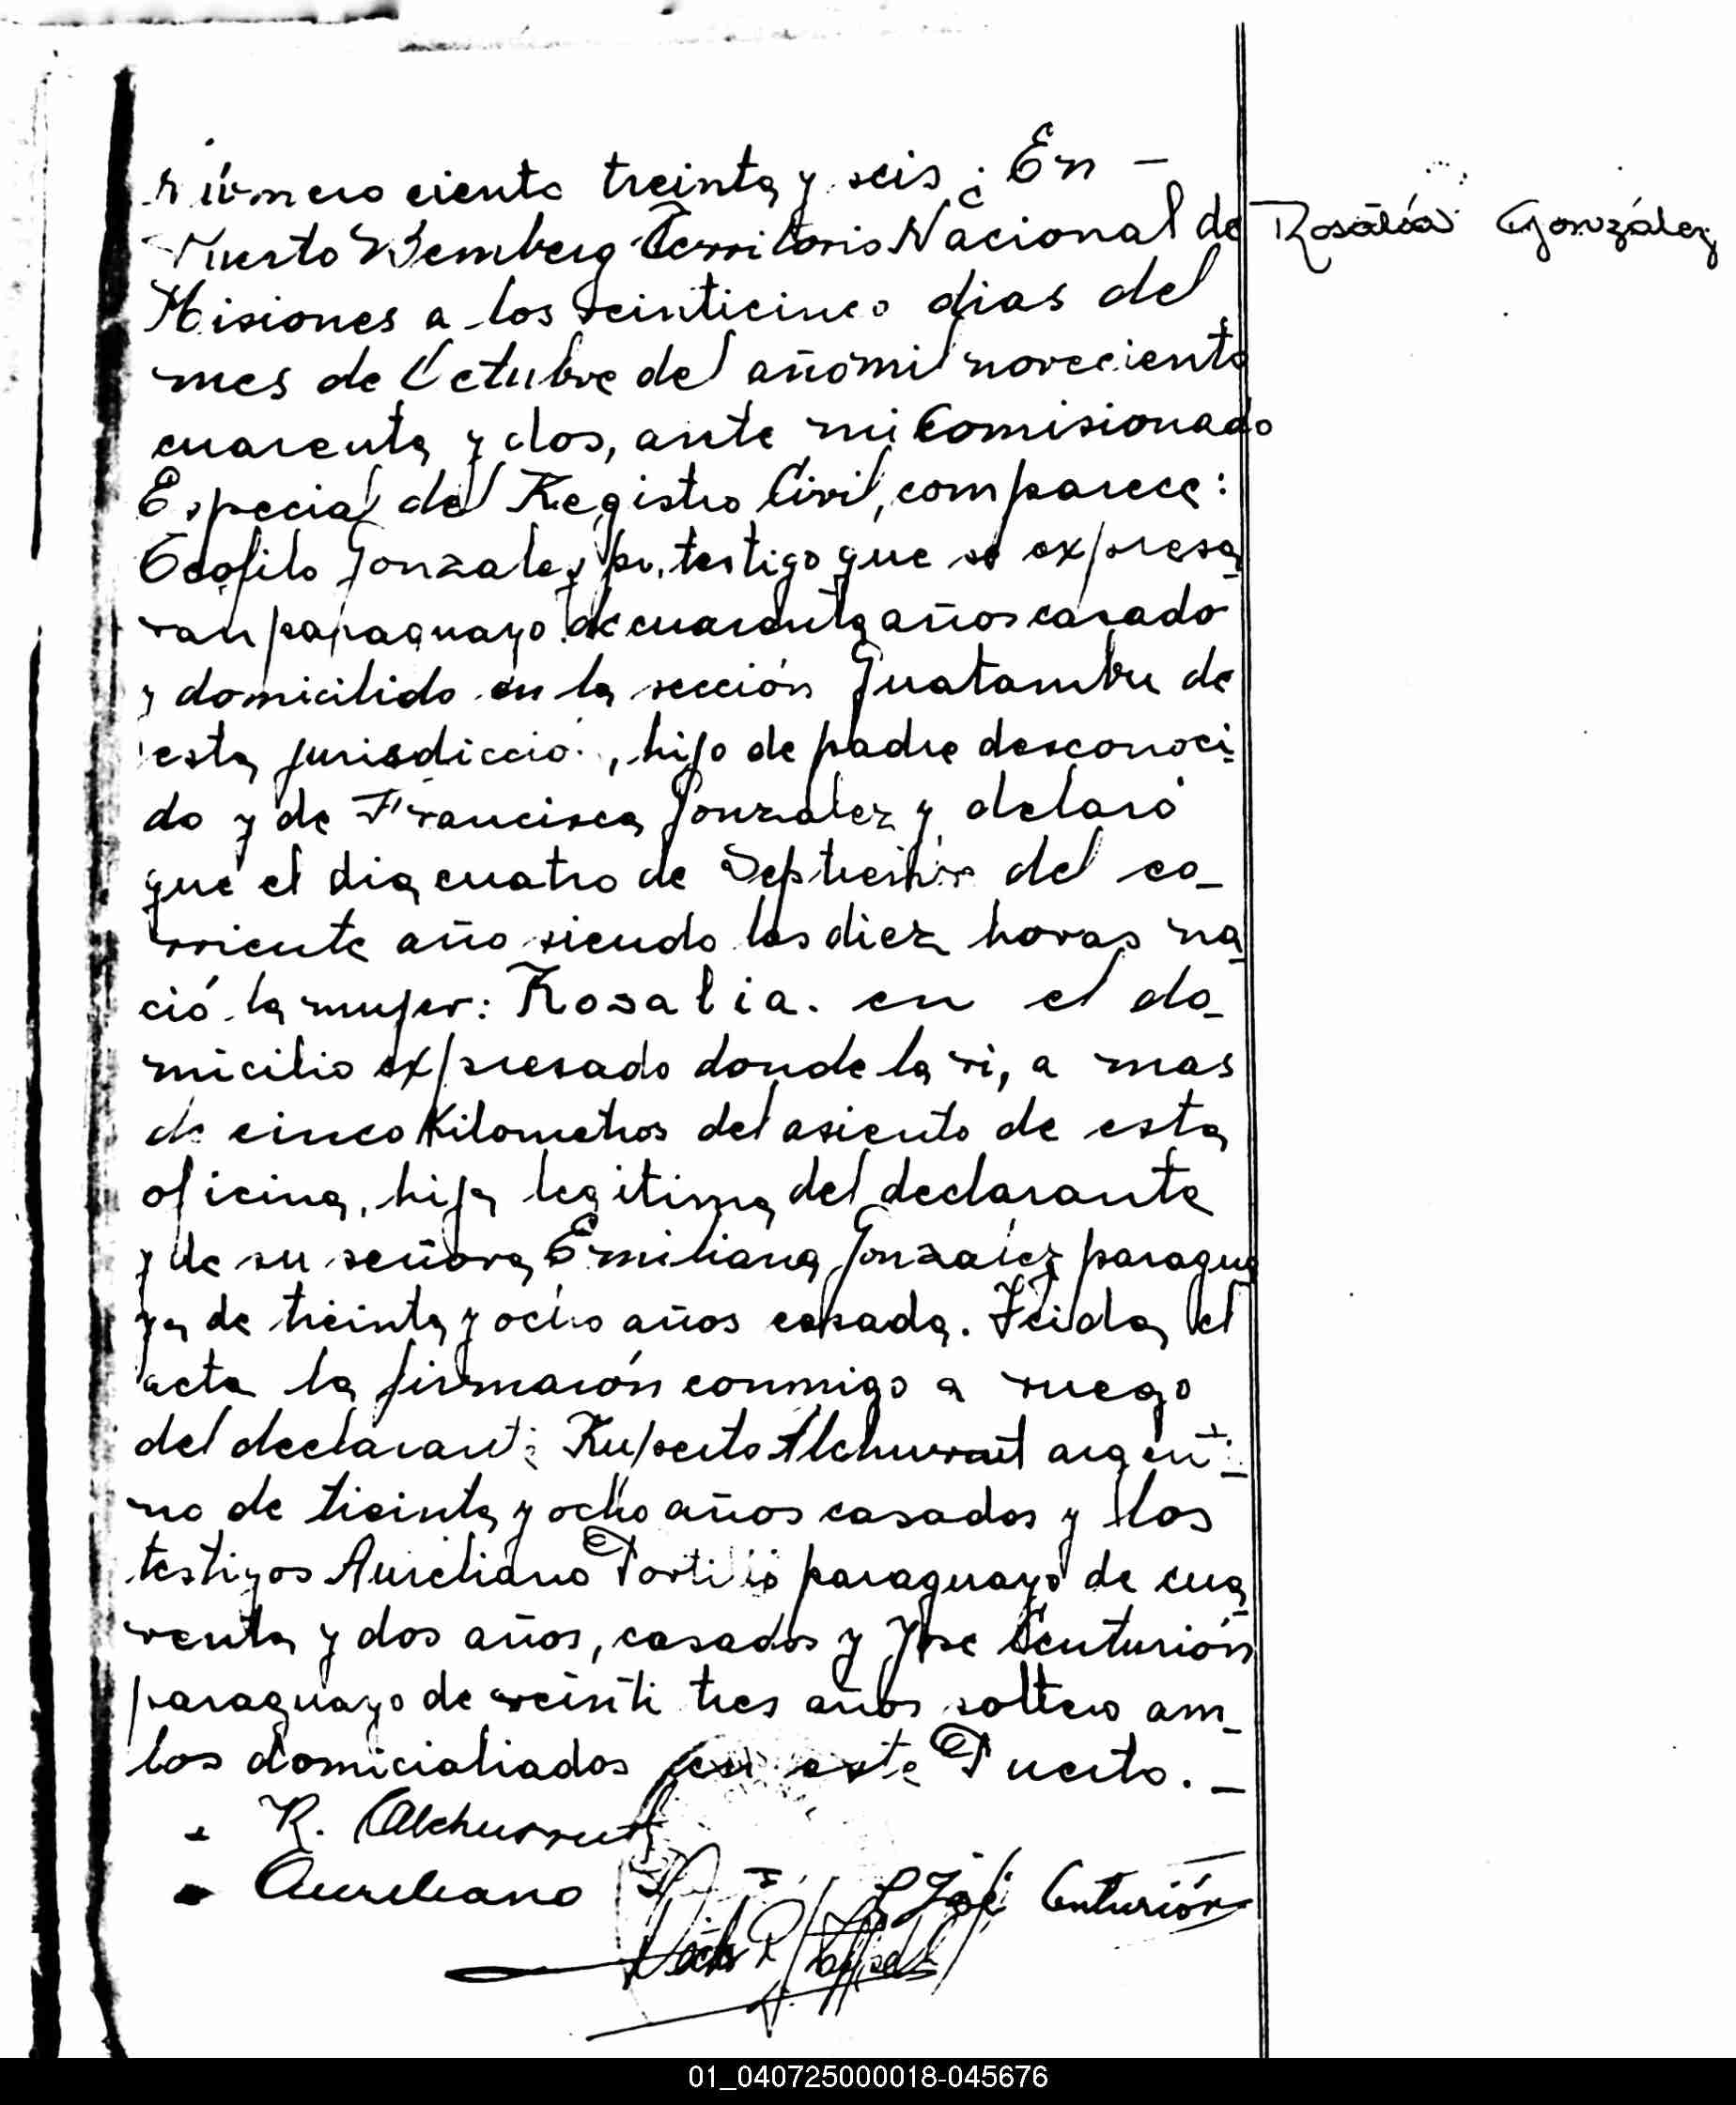 número ciento treinta y seis: En —
Puerto Bemberg Territorio Nacional de
Rosalía González
Misiones a los veinticinco dias del
mes de Octubre del año mil noveciento
cuarenta y dos, ante mi Comisionado
Especial del Registro Civil, comparece:
Teofilo Gonzalez po. testigo que se expresa
ran paraguayo de cuarenta años casado
y domicilido en la sección Guatambu de
esta jurisdicció , hijo de padre desconoci-
do y de Francisca Gonzalez y delaró
que el dia cuatro de Septiembre del co-
rriente año siendo las diez horas na-
ció la mujer: Rosalia. en el do-
micilio expresado donde la vi, a mas
de cinco Kilometros del asiento de esta
oficina, hija legitima del declarante
y de su señora Emiliana Gonzalez paragua
ya de treinta y ocho años casada. Leida el
acta la firmarón conmigo a ruego
del declarante Ruperto Alchurrut argenti-
no de treinta y ocho años casados y los
testigos Aureliano Portillo paraguayo de cua-
renta y dos años, casados y Jose Centurión
paraguayo de veinti tres años soltero am-
bos domicialiados en este Puerto. —
R. Alchurrut
Aureliano José Centurión
01_040725000018-045676